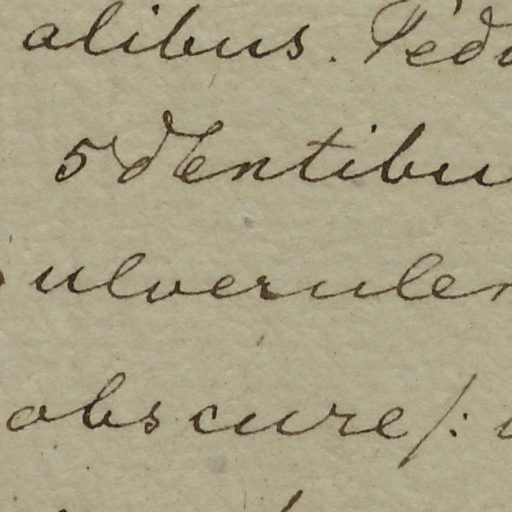 alibus. Pedu
5 dentibu
ulverulen
obscure /: